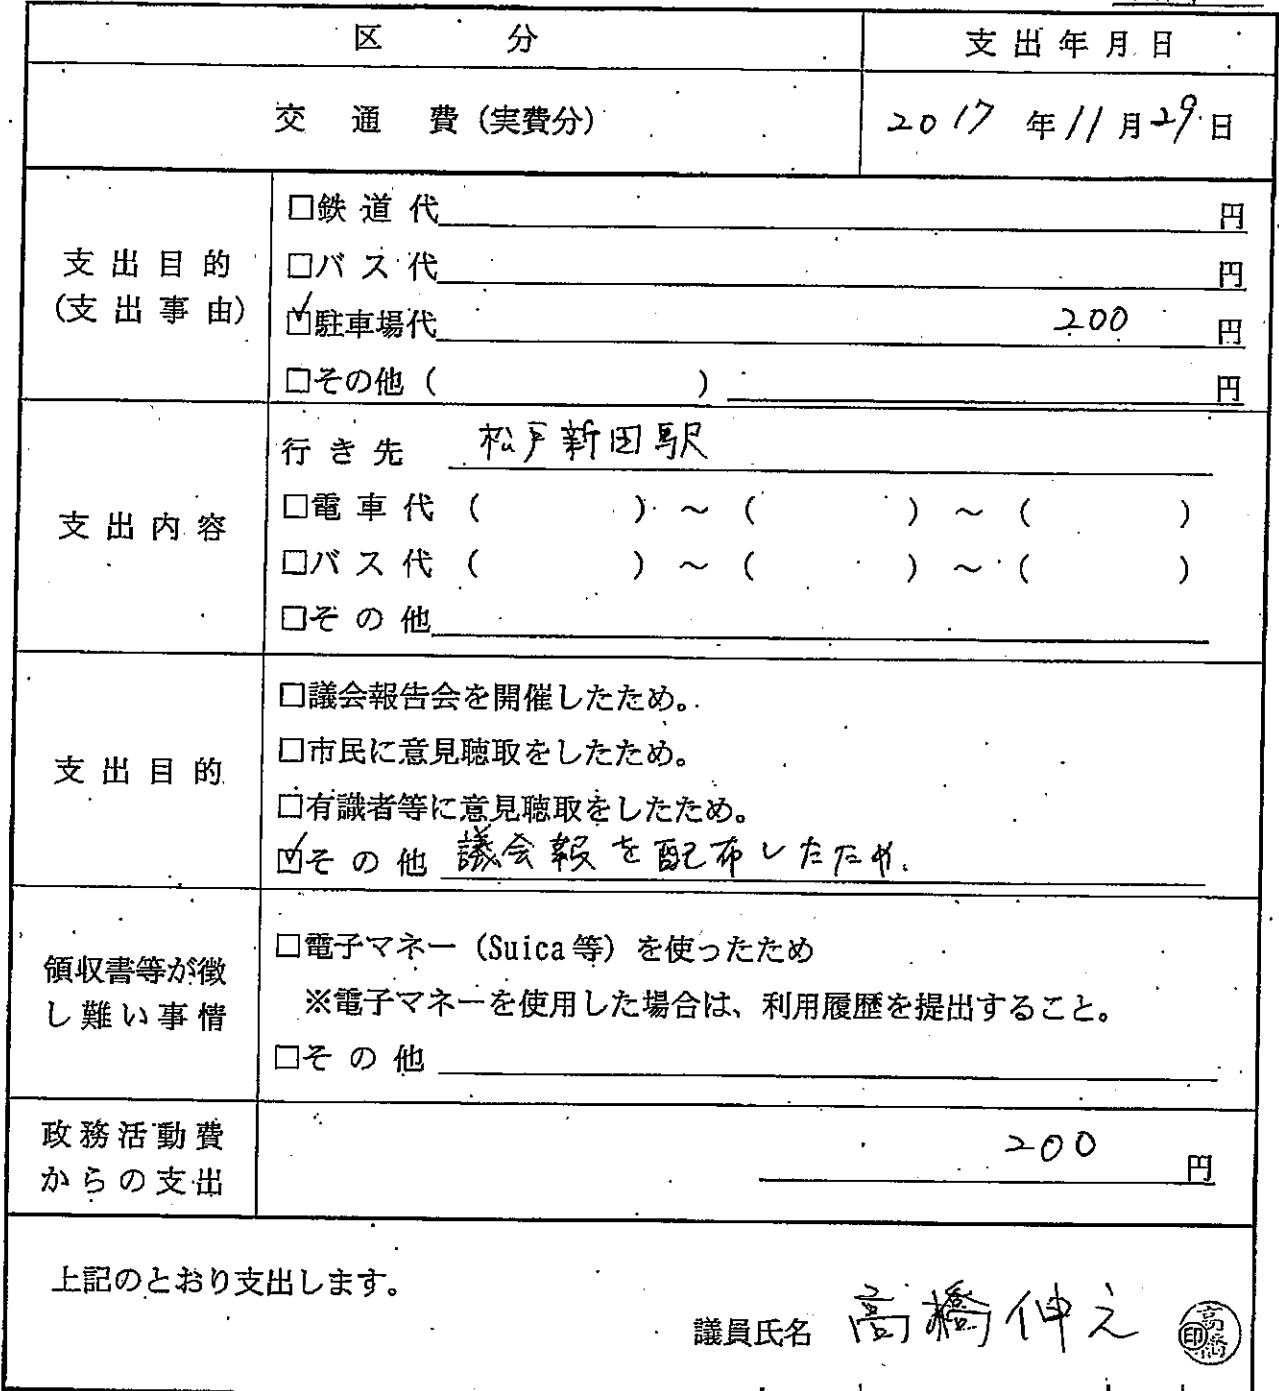 区 分 支出年月日
交通費(実費分) 2017年11月29日
支出目的
(支出事由)
□鉄道代 円
□バス代 円
☑駐車場代 200 円
□その他( ) 円
支出内容
行き先 松戸新田駅
□電車代( )~( )~( )
□バス代( )~( )~( )
□その他
支出目的
□議会報告会を開催したため。
□市民に意見聴取をしたため。
□有識者等に意見聴取をしたため。
☑その他 議会報を配布したため.
領収書等が徴
し難い事情
□電子マネー(Suica等)を使ったため
※電子マネーを使用した場合は、利用履歴を提出すること。
□その他
政務活動費
からの支出
200 円
上記のとおり支出します。
議員氏名 高橋伸之 高橋 印